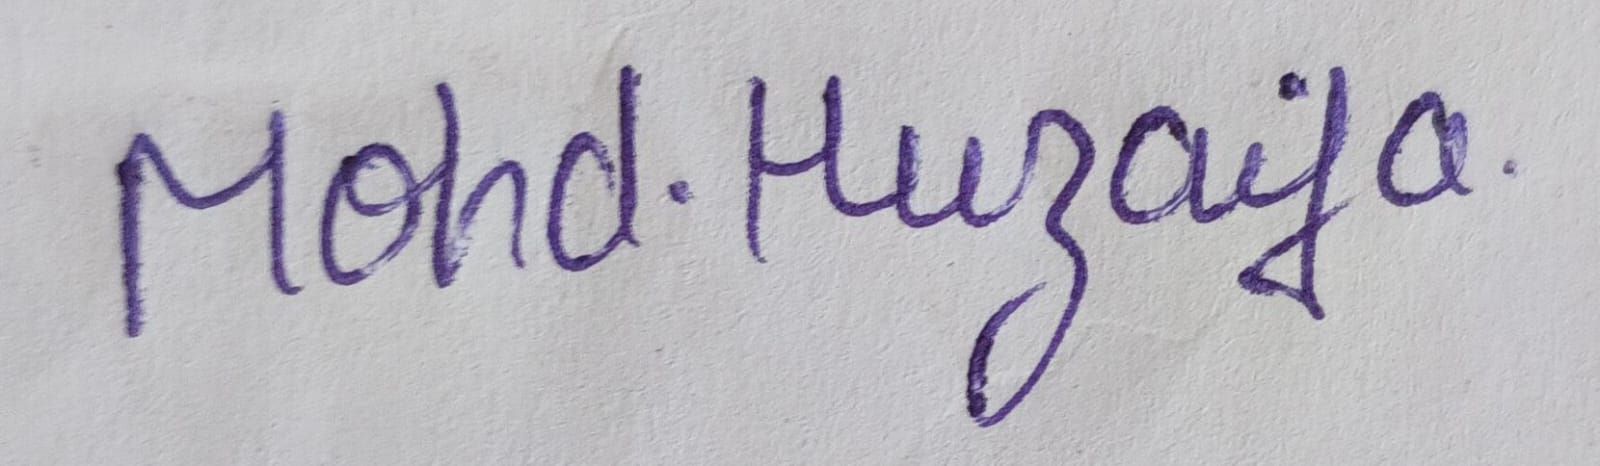 Mohd. Huzaifa.